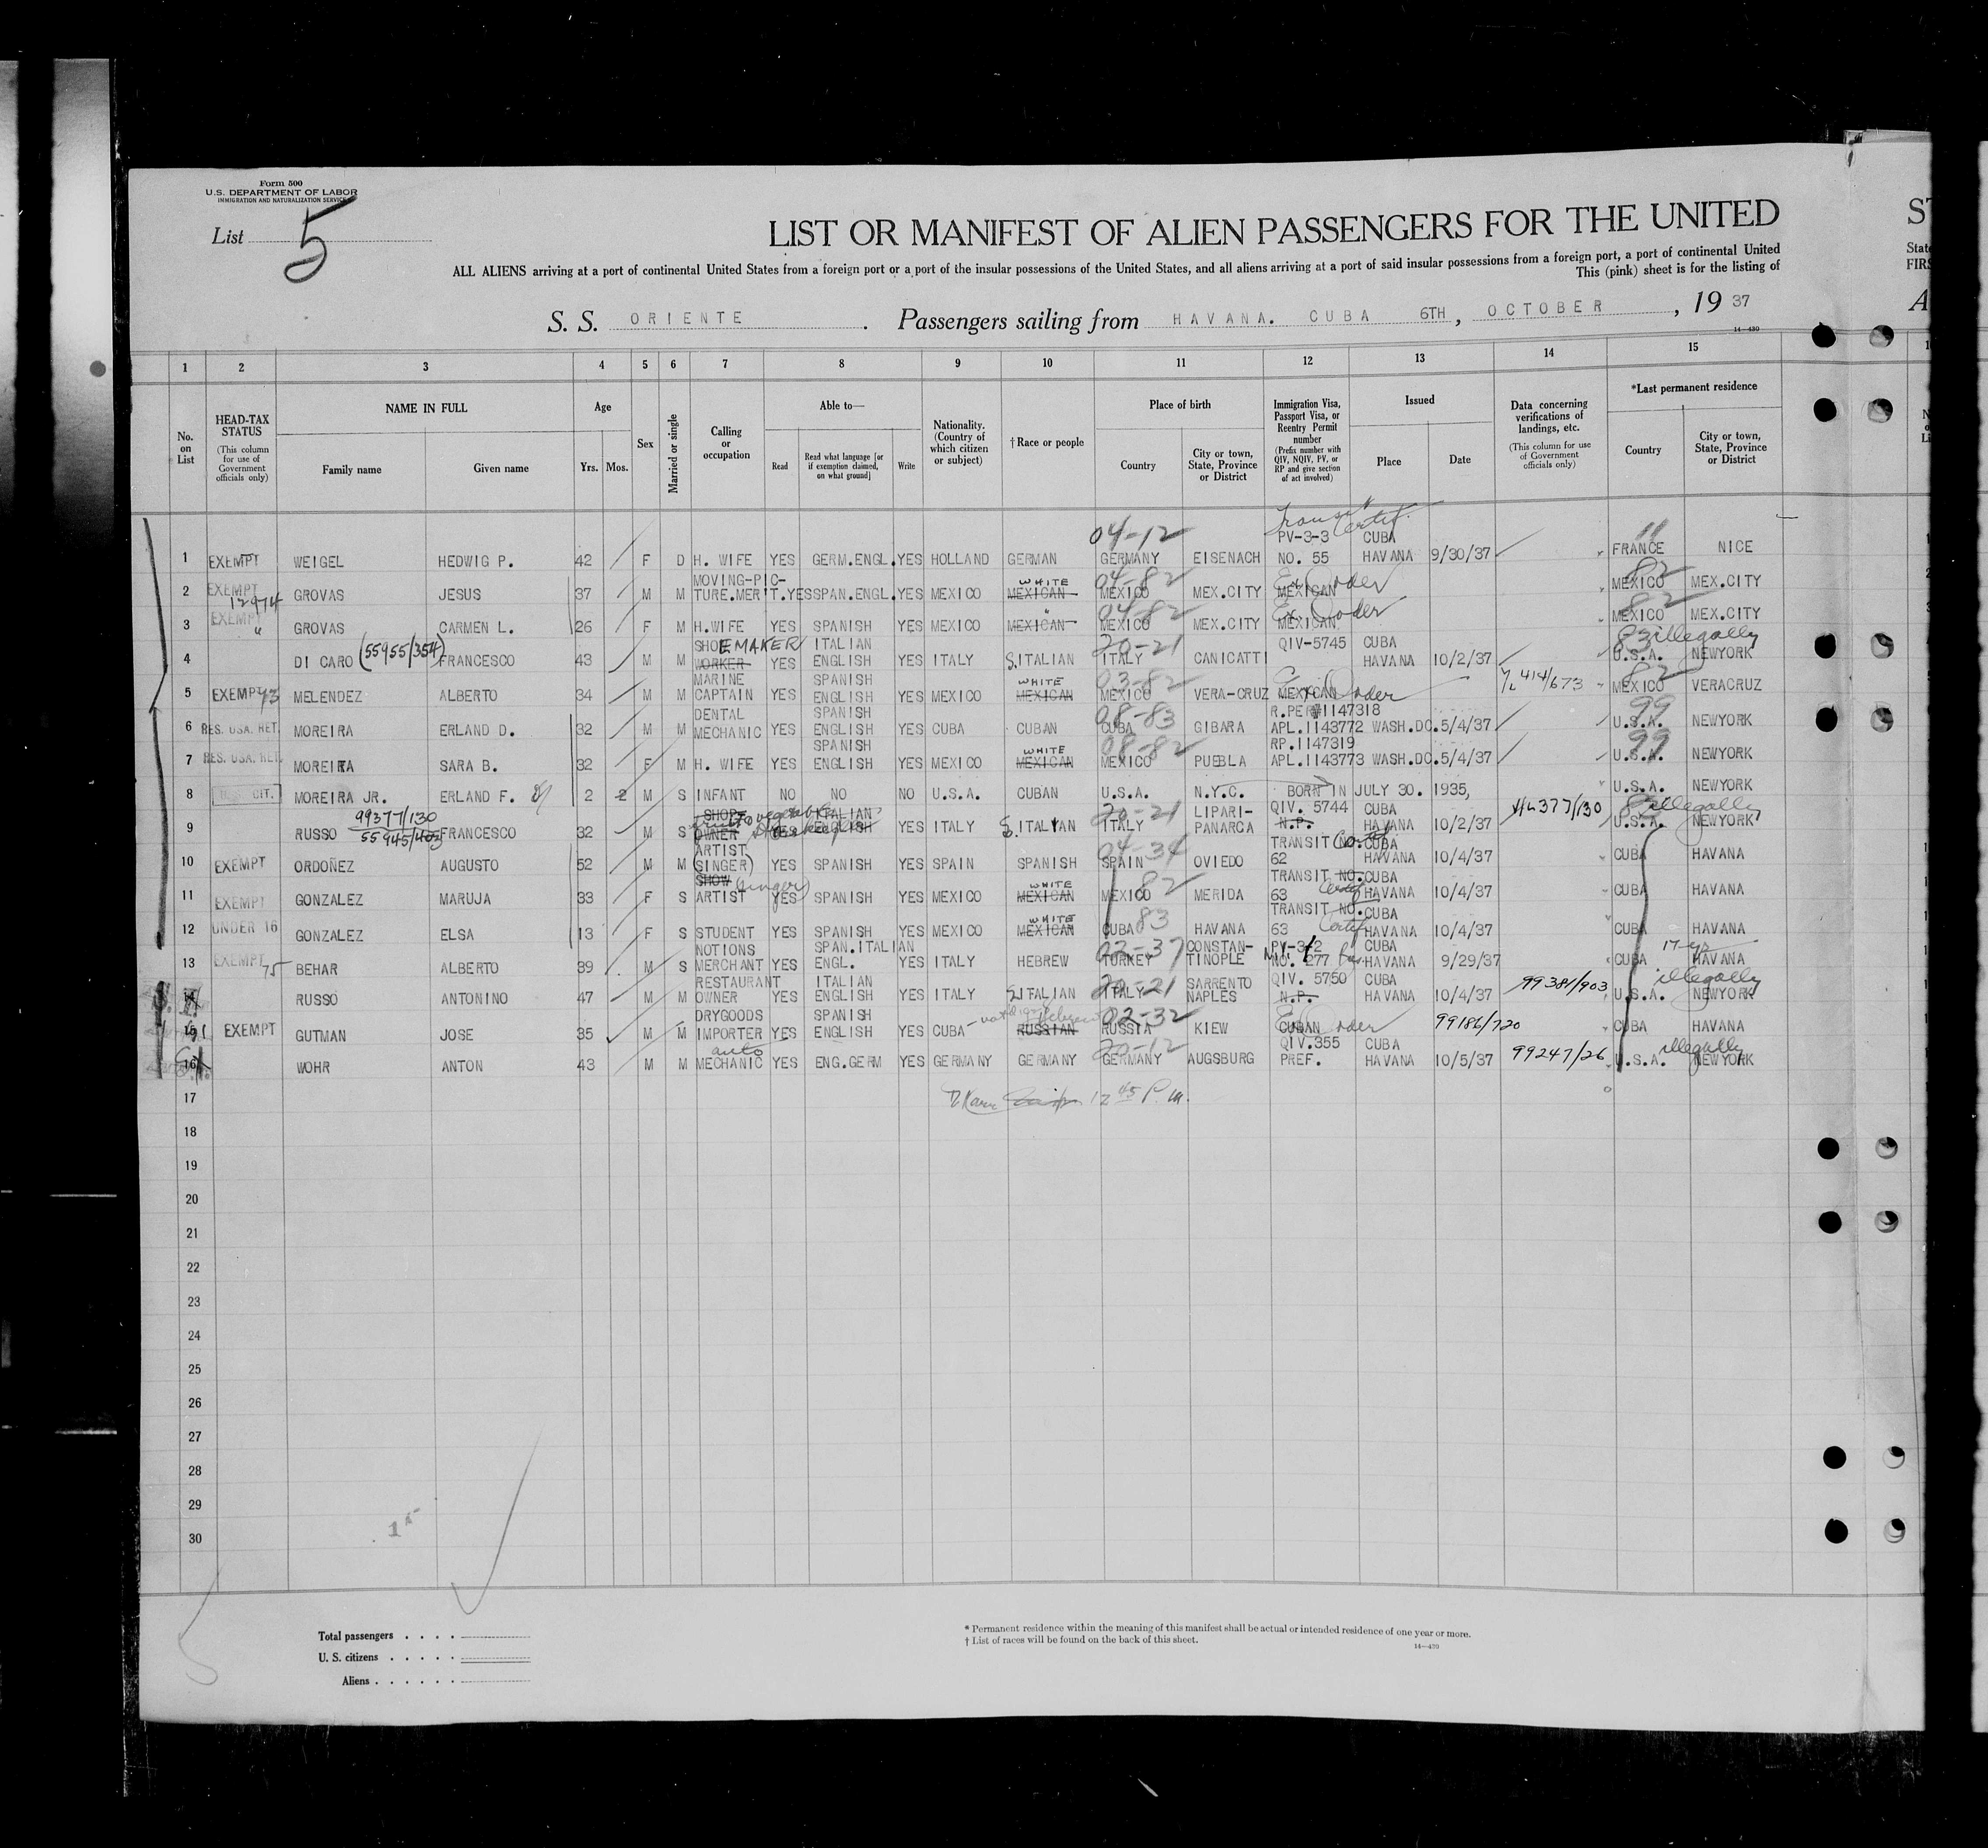 Form 500
U.S. DEPARTMENT OF LABOR
IMMIGRATION AND NATURALIZATION SERVICE
List 5
LIST OR MANIFEST OF ALIEN PASSENGERS FOR THE UNITED
ALL ALIENS arriving at a port of continental United States from a foreign port or a port of the insular possessions of the United States, and all aliens arriving at a port of said insular possessions from a foreign port, a port of continental United
This (pink) sheet is for the listing of
S. S. ORIENTE. Passengers sailing from HAVANA. CUBA 6TH, OCTOBER, 1937
14—430
1 2 3 4 5 6 7 8 9 10 11 12 13 14 15
No. on List
HEAD-TAX STATUS (This column for use of Government officials only)
NAME IN FULL
Family name Given name
Age Yrs. Mos.
Sex
Married or single
Calling or occupation
Able to—
Read Read what language [or if exemption claimed, on what ground] Write
Nationality. (Country of which citizen or subject)
†Race or people
Place of birth
Country City or town, State, Province or District
Immigration Visa, Passport Visa, or Reentry Permit number (Prefix number with QIV, NQIV, PV, or RP and give section of act involved)
Issued
Place Date
Data concerning verifications of landings, etc. (This column for use of Government officials only)
*Last permanent residence
Country City or town, State, Province or District
1 EXEMPT WEIGEL HEDWIG P. 42 F D H. WIFE YES GERM.ENGL. YES HOLLAND GERMAN 04-12 GERMANY EISENACH Transit Certif. PV-3-3 NO. 55 CUBA HAVANA 9/30/37 11 FRANCE NICE
2 EXEMPT 12974 GROVAS JESUS 37 M M MOVING-PIC-TURE.MER'T. YES SPAN.ENGL. YES MEXICO WHITE MEXICAN 04-82 MEXICO MEX.CITY MEXICAN Ex. Order 82 MEXICO MEX.CITY
3 EXEMPT " GROVAS CARMEN L. 26 F M H.WIFE YES SPANISH YES MEXICO " MEXICAN 04-82 MEXICO MEX.CITY MEXICAN Ex. Order 82 MEXICO MEX.CITY
4 DI CARO (55955/354) FRANCESCO 43 M M SHOEMAKER WORKER YES ITALIAN ENGLISH YES ITALY S.ITALIAN 20-21 ITALY CANICATTI QIV-5745 CUBA HAVANA 10/2/37 83 illegally U.S.A. NEWYORK
5 EXEMPT 43 MELENDEZ ALBERTO 34 M M MARINE CAPTAIN YES SPANISH ENGLISH YES MEXICO WHITE MEXICAN 03-82 MEXICO VERA-CRUZ MEXICAN Ex. Order 414/673 82 MEXICO VERACRUZ
6 RES. USA. RET. MOREIRA ERLAND D. 32 M M DENTAL MECHANIC YES SPANISH ENGLISH YES CUBA CUBAN 08-83 CUBA GIBARA R.PER#1147318 APL.1143772 WASH.DC. 5/4/37 99 U.S.A. NEWYORK
7 RES. USA. RET. MOREIRA SARA B. 32 F M H. WIFE YES SPANISH ENGLISH YES MEXICO WHITE MEXICAN 08-82 MEXICO PUEBLA RP.1147319 APL.1143773 WASH.DC. 5/4/37 99 U.S.A. NEWYORK
8 CIT. MOREIRA JR. ERLAND F. 2 2 M S INFANT NO NO NO U.S.A. CUBAN U.S.A. N.Y.C. BORN IN JULY 30. 1935, U.S.A. NEWYORK
9 RUSSO 99377/130 55945/403 FRANCESCO 32 M S SHOP OWNER YES ITALIAN ENGLISH YES ITALY S.ITALIAN 20-21 ITALY LIPARI-PANARCA QIV. 5744 N.P. CUBA HAVANA 10/2/37 377/130 83 illegally U.S.A. NEWYORK
10 EXEMPT ORDOÑEZ AUGUSTO 52 M M ARTIST (SINGER) YES SPANISH YES SPAIN SPANISH 04-34 SPAIN OVIEDO TRANSIT NO. 62 CUBA HAVANA 10/4/37 CUBA HAVANA
11 EXEMPT GONZALEZ MARUJA 33 F S SHOW (singer) ARTIST YES SPANISH YES MEXICO WHITE MEXICAN 82 MEXICO MERIDA TRANSIT NO. 63 Certif CUBA HAVANA 10/4/37 CUBA HAVANA
12 UNDER 16 GONZALEZ ELSA 13 F S STUDENT YES SPANISH YES MEXICO WHITE MEXICAN 83 CUBA HAVANA TRANSIT NO. 63 Certif CUBA HAVANA 10/4/37 CUBA HAVANA
13 EXEMPT 75 BEHAR ALBERTO 39 M S NOTIONS MERCHANT YES SPAN.ITALIAN ENGL. YES ITALY HEBREW 02-37 TURKEY CONSTAN-TINOPLE PV-3-2 NO. 277 CUBA HAVANA 9/29/37 17 yrs CUBA HAVANA
14 RUSSO ANTONINO 47 M M RESTAURANT OWNER YES ITALIAN ENGLISH YES ITALY S.ITALIAN 20-21 ITALY SARRENTO NAPLES QIV. 5750 N.P. CUBA HAVANA 10/4/37 99381/903 illegally U.S.A. NEWYORK
15 EXEMPT GUTMAN JOSE 35 M M DRYGOODS IMPORTER YES SPANISH ENGLISH YES CUBA Hebrew RUSSIAN 02-32 RUSSIA KIEW CUBAN Ex Order 99186/720 CUBA HAVANA
16 WOHR ANTON 43 M M auto MECHANIC YES ENG.GERM YES GERMANY GERMANY 20-12 GERMANY AUGSBURG QIV.355 PREF. CUBA HAVANA 10/5/37 99247/26 illegally U.S.A. NEWYORK
17 12 45 P.M.
18
19
20
21
22
23
24
25
26
27
28
29
30
Total passengers . . . .
U. S. citizens . . . . .
Aliens . . . . . .
* Permanent residence within the meaning of this manifest shall be actual or intended residence of one year or more.
† List of races will be found on the back of this sheet.
14—430